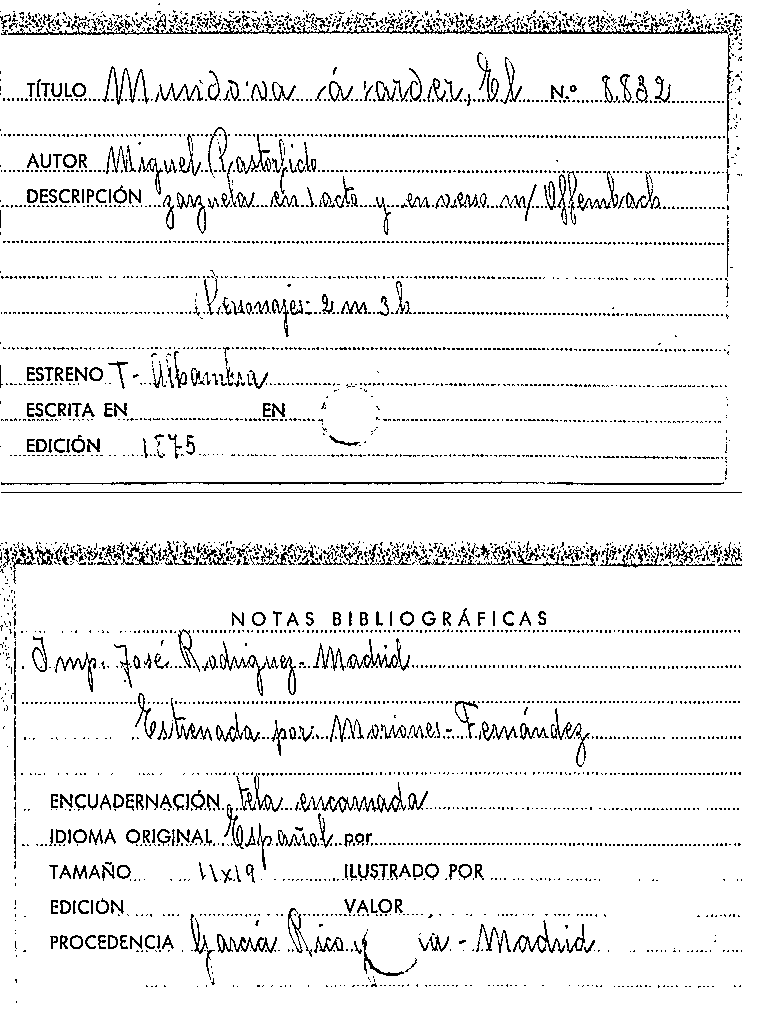 TÍTULO Mundo va á arder, El N.º 8.832
AUTOR Miguel Pastorfido
DESCRIPCIÓN zarzuela en 1 acto y en verso m/ Offembach
Personajes: 2 m 3 h
ESTRENO T- Alhambra
ESCRITA EN EN
EDICIÓN 1875
NOTAS BIBLIOGRÁFICAS
Imp. José Rodriguez- Madrid
Estrenada por: Moriones- Fernández
ENCUADERNACIÓN tela encarnada
IDIOMA ORIGINAL Español por
TAMAÑO 11x19 ILUSTRADO POR
EDICIÓN VALOR
PROCEDENCIA García Rico y - Madrid